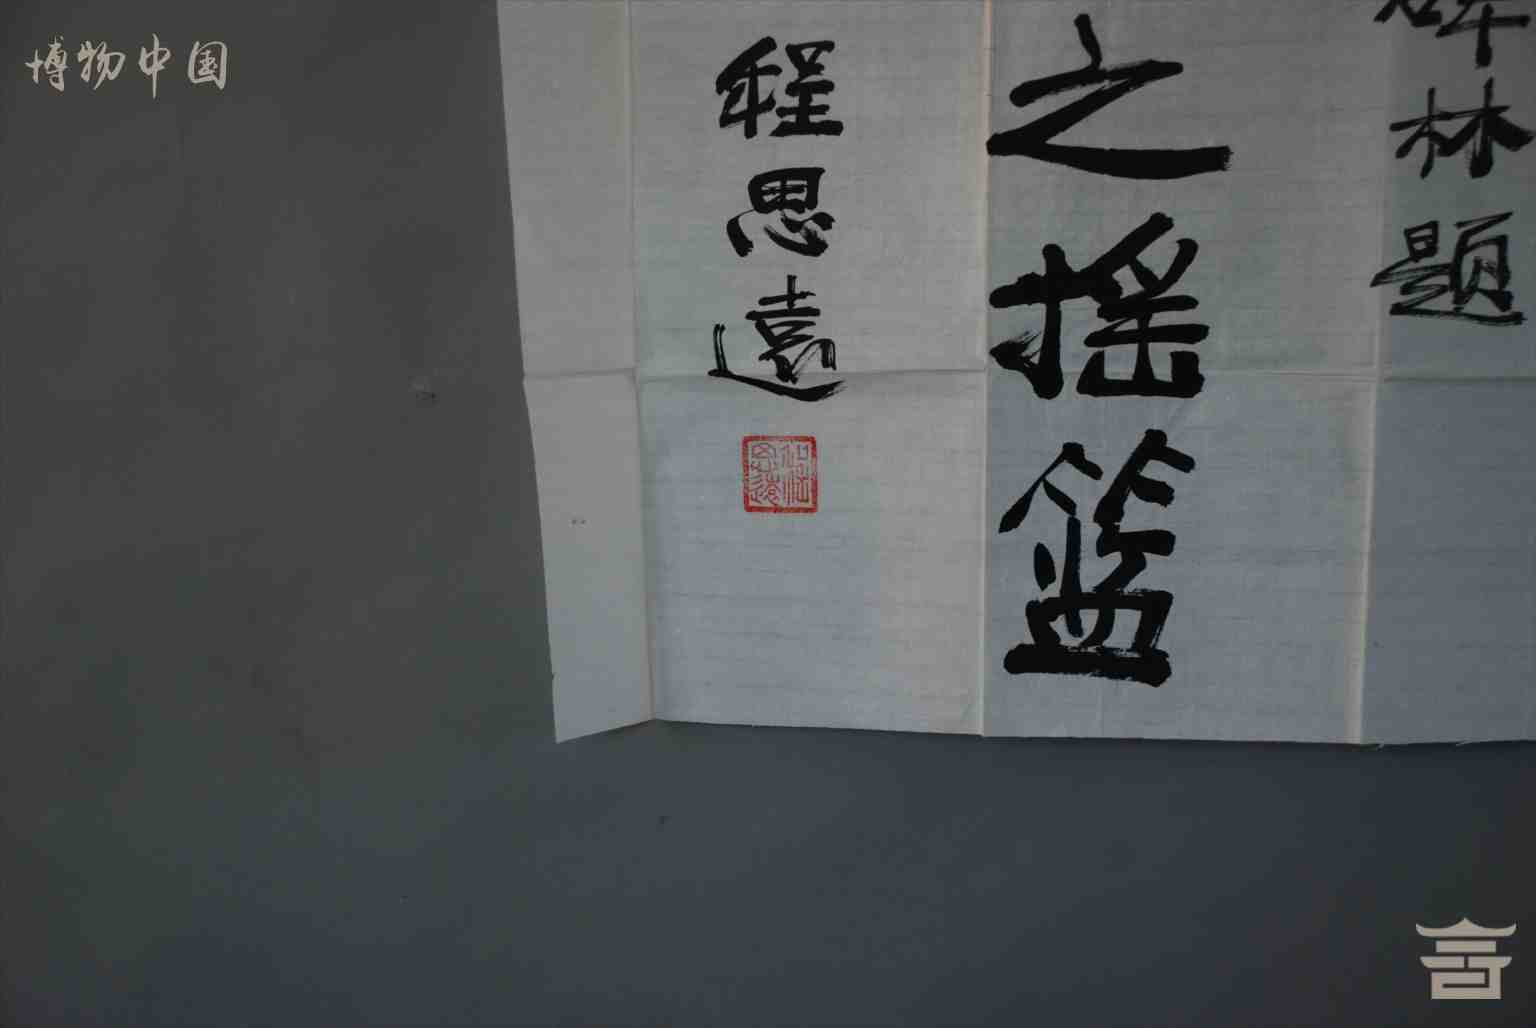 博物中国
碑林题
之摇篮
程思遠